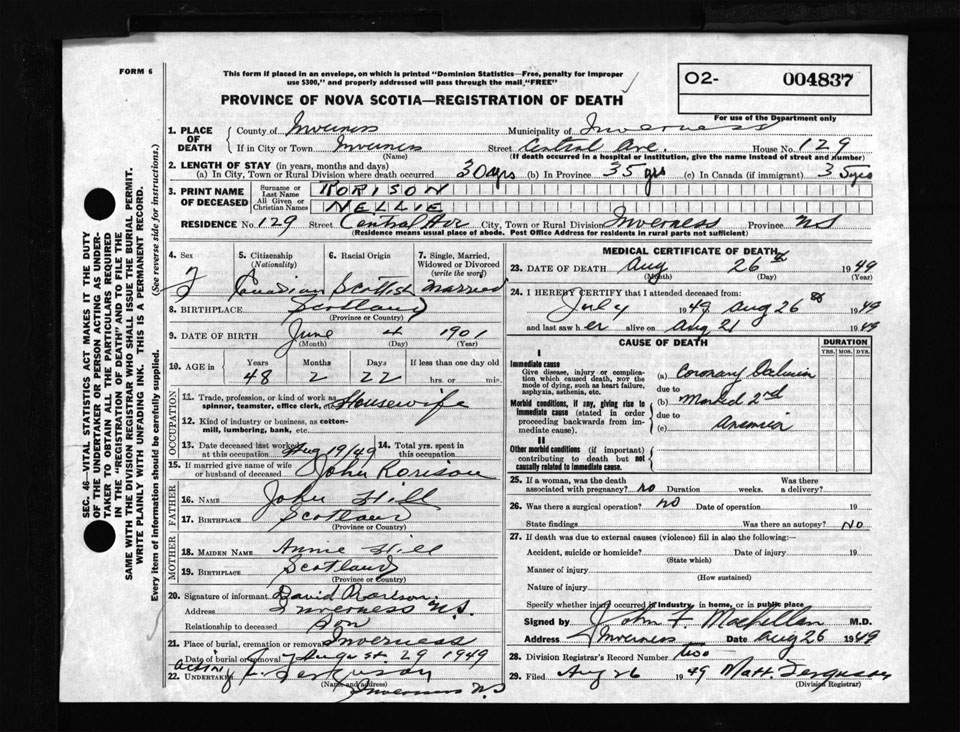 FORM 6
This form if placed in an envelope, on which is printed "Dominion Statistics—Free, penalty for improper
use $300," and properly addressed will pass through the mail "FREE"
O2- 004837
PROVINCE OF NOVA SCOTIA—REGISTRATION OF DEATH
For use of the Department only
SEC. 46—VITAL STATISTICS ACT MAKES IT THE DUTY
OF THE UNDERTAKER OR PERSON ACTING AS UNDER-
TAKER TO OBTAIN ALL THE PARTICULARS REQUIRED
IN THE "REGISTRATION OF DEATH" AND TO FILE THE
SAME WITH THE DIVISION REGISTRAR WHO SHALL ISSUE THE BURIAL PERMIT.
WRITE PLAINLY WITH UNFADING INK. THIS IS A PERMANENT RECORD.
Every item of information should be carefully supplied. (See reverse side for instructions.)
1. PLACE OF DEATH County of Inverness Municipality of Inverness
If in City or Town Inverness Street Central Ave. House No. 129
(Name) (If death occurred in a hospital or institution, give name instead of street and number)
2. LENGTH OF STAY (in years, months and days)
(a) In City, Town or Rural Division where death occurred 30 yrs (b) In Province 35 yrs (c) In Canada (if immigrant) 35 yrs
3. PRINT NAME OF DECEASED Surname or Last Name RORISON
All Given or Christian Names NELLIE
RESIDENCE No. 129 Street Central Ave City, Town or Rural Division Inverness Province NS
(Residence means usual place of abode. Post Office Address for residents in rural parts not sufficient)
4. Sex 5. Citizenship (Nationality) 6. Racial Origin 7. Single, Married, Widowed or Divorced (write the word)
F Canadian Scottish Married
8. BIRTHPLACE Scotland
(Province or Country)
9. DATE OF BIRTH June 4 1901
(Month) (Day) (Year)
10. AGE in Years Months Days If less than one day old
48 2 22 hrs. or min.
OCCUPATION
11. Trade, profession, or kind of work as spinner, teamster, office clerk, etc. Housewife
12. Kind of industry or business, as cotton-mill, lumbering, bank, etc.
13. Date deceased last worked at this occupation Aug 19/49 14. Total yrs. spent in this occupation
15. If married give name of wife or husband of deceased John Rorison
FATHER
16. NAME John Hill
17. BIRTHPLACE Scotland
(Province or Country)
MOTHER
18. MAIDEN NAME Annie Hill
19. BIRTHPLACE Scotland
(Province or Country)
20. Signature of informant David Rorison
Address Inverness N.S.
Relationship to deceased Son
21. Place of burial, cremation or removal Inverness
Date of burial or removal August 29 1949
22. UNDERTAKER Ferguson
(Name and address) Inverness N.S
MEDICAL CERTIFICATE OF DEATH
23. DATE OF DEATH Aug 26th 1949
(Month) (Day) (Year)
24. I HEREBY CERTIFY that I attended deceased from:
July 1949 to Aug 26th 1949
and last saw her alive on Aug 21 1949
CAUSE OF DEATH DURATION
YRS. MOS. DYS.
I
Immediate cause
Give disease, injury or complication which caused death, NOT the mode of dying, such as heart failure, asphyxia, asthenia, etc. (a) Coronary
due to
Morbid conditions, if any, giving rise to immediate cause (stated in order proceeding backwards from immediate cause). (b) Marked 2nd
due to
(c) Anemia
II
Other morbid conditions (if important) contributing to death but not causally related to immediate cause.
25. If a woman, was the death associated with pregnancy? no Duration weeks. Was there a delivery?
26. Was there a surgical operation? no Date of operation 19
State findings Was there an autopsy? No
27. If death was due to external causes (violence) fill in also the following:—
Accident, suicide or homicide? Date of injury 19
(State which)
Manner of injury
(How sustained)
Nature of injury
Specify whether injury occurred in industry, in home, or in public place
Signed by John F. MacLellan M.D.
Address Inverness Date Aug 26 1949
28. Division Registrar's Record Number two
29. Filed Aug 26 1949 Matt. Ferguson
(Division Registrar)